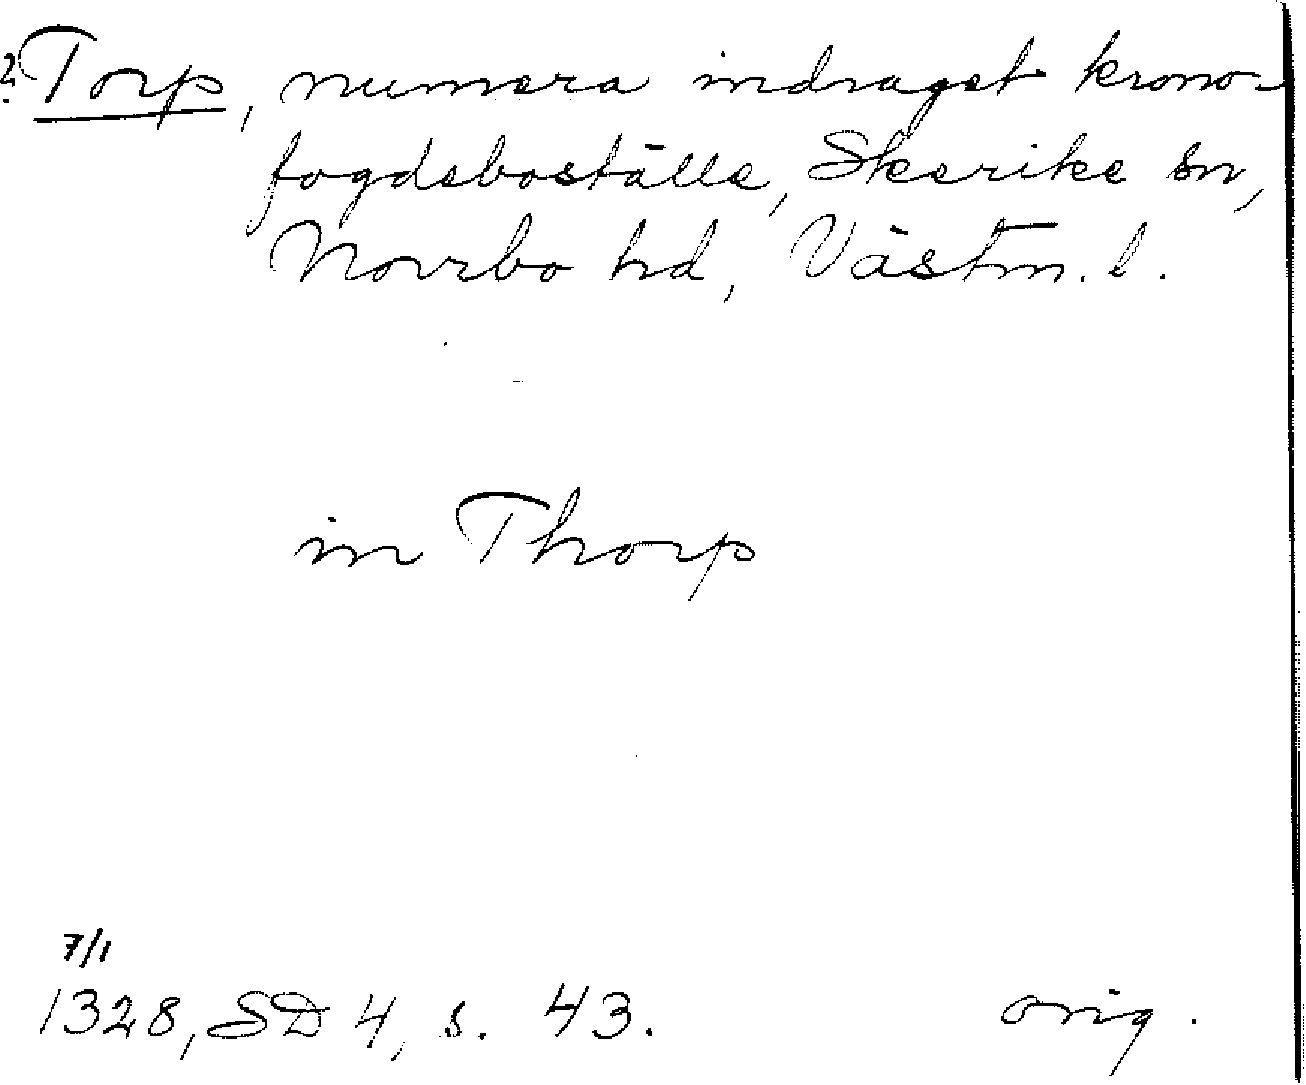 ? Torp, numera indraget krono-
fogdeboställe, Skerike sn,
Norrbo hd, Västm. l.
in Thorp
7/1
1328, SD 4, s. 43. orig.